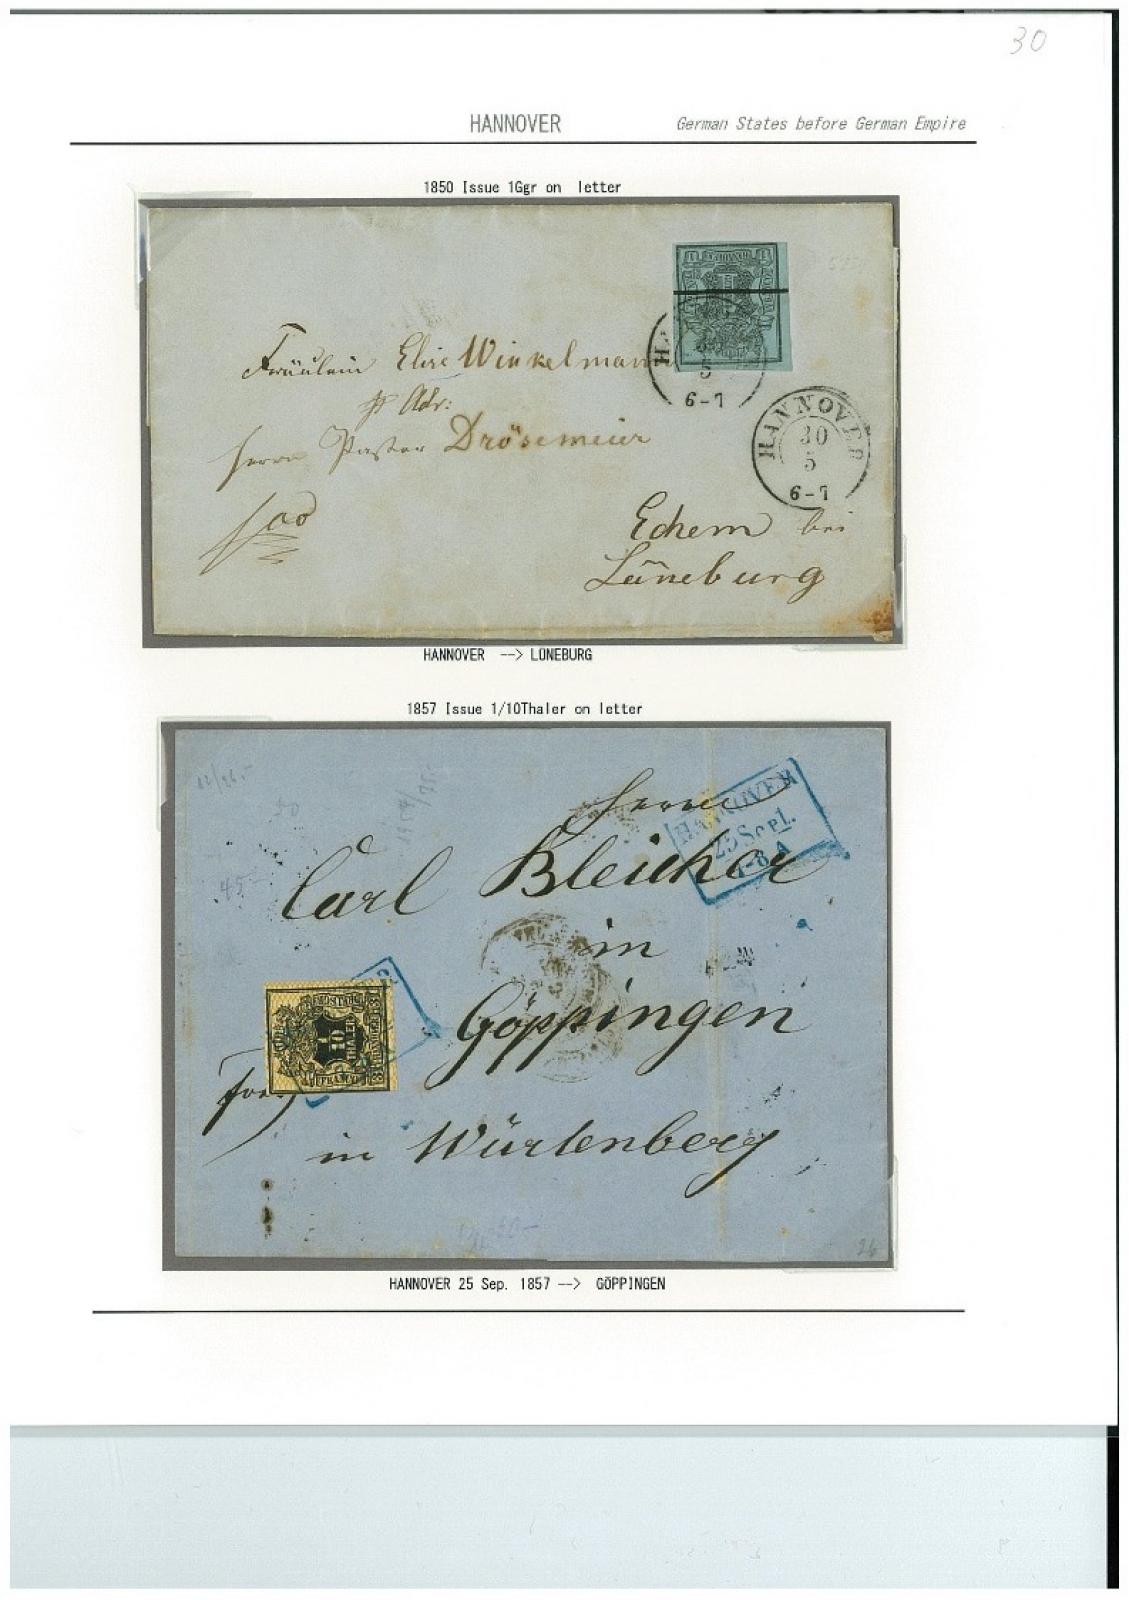 30
HANNOVER
German States before German Empire
1850 Issue 1Ggr on letter
Fräulein Elise Winkelmann
pr Adr:
Herrn Pastor Drösemeier
Echem bei
Lüneburg
HANNOVER
5
6-7
HANNOVER
30
5
6-7
HANNOVER --> LÜNEBURG
1857 Issue 1/10Thaler on letter
Herrn
Carl Bleicher
in
Göppingen
in Würtenberg
HANNOVER
25 Sept.
1
10
THALER
HANNOVER
45-
26
HANNOVER 25 Sep. 1857 --> GÖPPINGEN